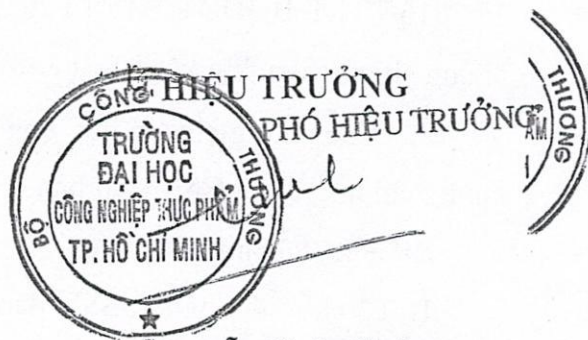 HIỆU TRƯỞNG
PHÓ HIỆU TRƯỞNG
BỘ CÔNG THƯƠNG
TRƯỜNG
ĐẠI HỌC
CÔNG NGHIỆP THỰC PHẨM
TP. HỒ CHÍ MINH
THƯƠNG
ẨM